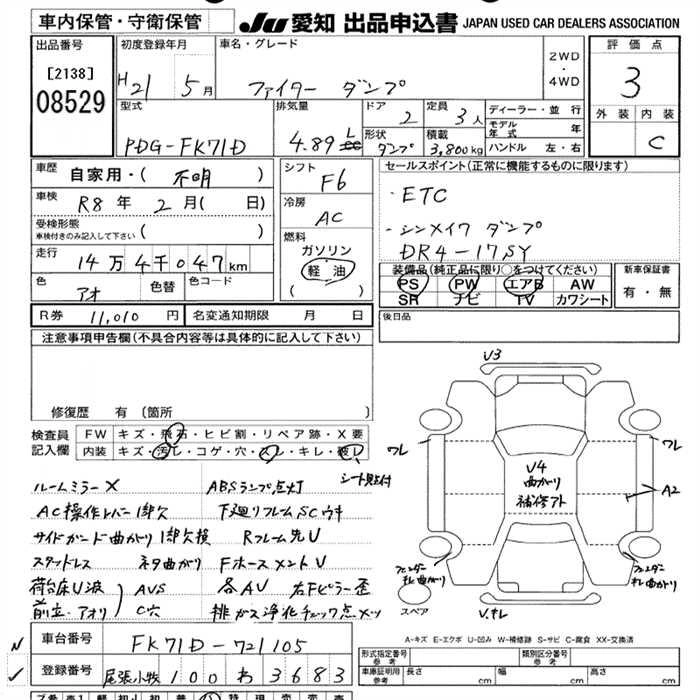 車内保管・守衛保管
JU 愛知 出品申込書 JAPAN USED CAR DEALERS ASSOCIATION
出品番号
[2138]
08529
初度登録年月
H21 5月
車名・グレード
ファイター ダンプ
2WD
・
4WD
評価点
3
外装 内装
C
型式
PDG-FK71D
排気量
4.89 L
ドア
2
定員
3人
形状
ダンプ
積載
3,800kg
ディーラー・並行
モデル年式 年
ハンドル 左・右
車歴
自家用・( 不明 )
車検
R8年 2月( 日)
受検形態
車検付きのみ記入して下さい ( )
走行
14万4千047km
色
アオ
色替
色コード
R券 11,010円
名変通知期限 月 日
シフト
F6
冷房
AC
燃料
ガソリン
軽油
( )
セールスポイント(正常に機能するものに限ります)
・ETC
・シンメイワ ダンプ
DR4-17SY
装備品(純正品に限り○をつけてください)
PS PW エアB AW
SR ナビ TV カワシート
新車保証書
有・無
後日品
注意事項申告欄(不具合内容等は具体的に記入して下さい)
修復歴 有(箇所 )
検査員
記入欄
FW キズ・飛石・ヒビ割・リペア跡・X要
内装 キズ・汚レ・コゲ・穴・スレ・キレ・破レ
シート
ルームミラーX ABSランプ点灯
AC操作レバー1部欠 下廻りフレームSCウキ
サイドガード曲がり 1部欠損 Rフレーム先U
スタッドレス ネタ曲がり FホースメントU
荷台床U波 AVS 各AU 右Fピラー歪
前立・アオリ C穴 排ガス浄化チェック点メッ
V3
ワレ
ワレ
V4
曲がり
補修アト
A2
フェンダー
キレ曲がり
フェンダー
キレ曲がり
スペア
U.キレ
A-キズ E-エクボ U-凹み W-補修跡 S-サビ C-腐食 XX-交換済
車台番号 FK71D-721105
登録番号 尾張小牧 100 わ 3683
形式指定番号
参考
類別区分番号
参考
車庫証明用
参考
長さ cm 幅 cm 高さ cm